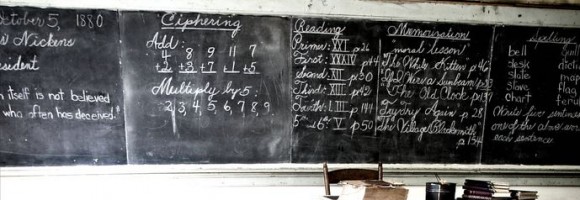 October 5, 1880
Nickens
President
itself is not believed
who often has deceived."
Ciphering
Add:
4 8 9 11 7
+2 +3 +7 +1 +5
Multiply by 5:
2, 3, 4, 5, 6, 7, 8, 9
Reading
Primer: XVI p 26
First: XXXIV p 44
Second: XVI p 50
Third: XIII p 42
Fourth: LIII p 144
5th 6th: V p 50
Memorization
"moral lesson"
"The Whly Kitten" p 46
"If I Were a Sunbeam" p 53
"The Old Clock" p 137
or
Try Again p 28
"The Village Blacksmith"
p 154
Spelling
bell
desk
slate
stove
chart
Write five sentences
one of the above words
each sentence.